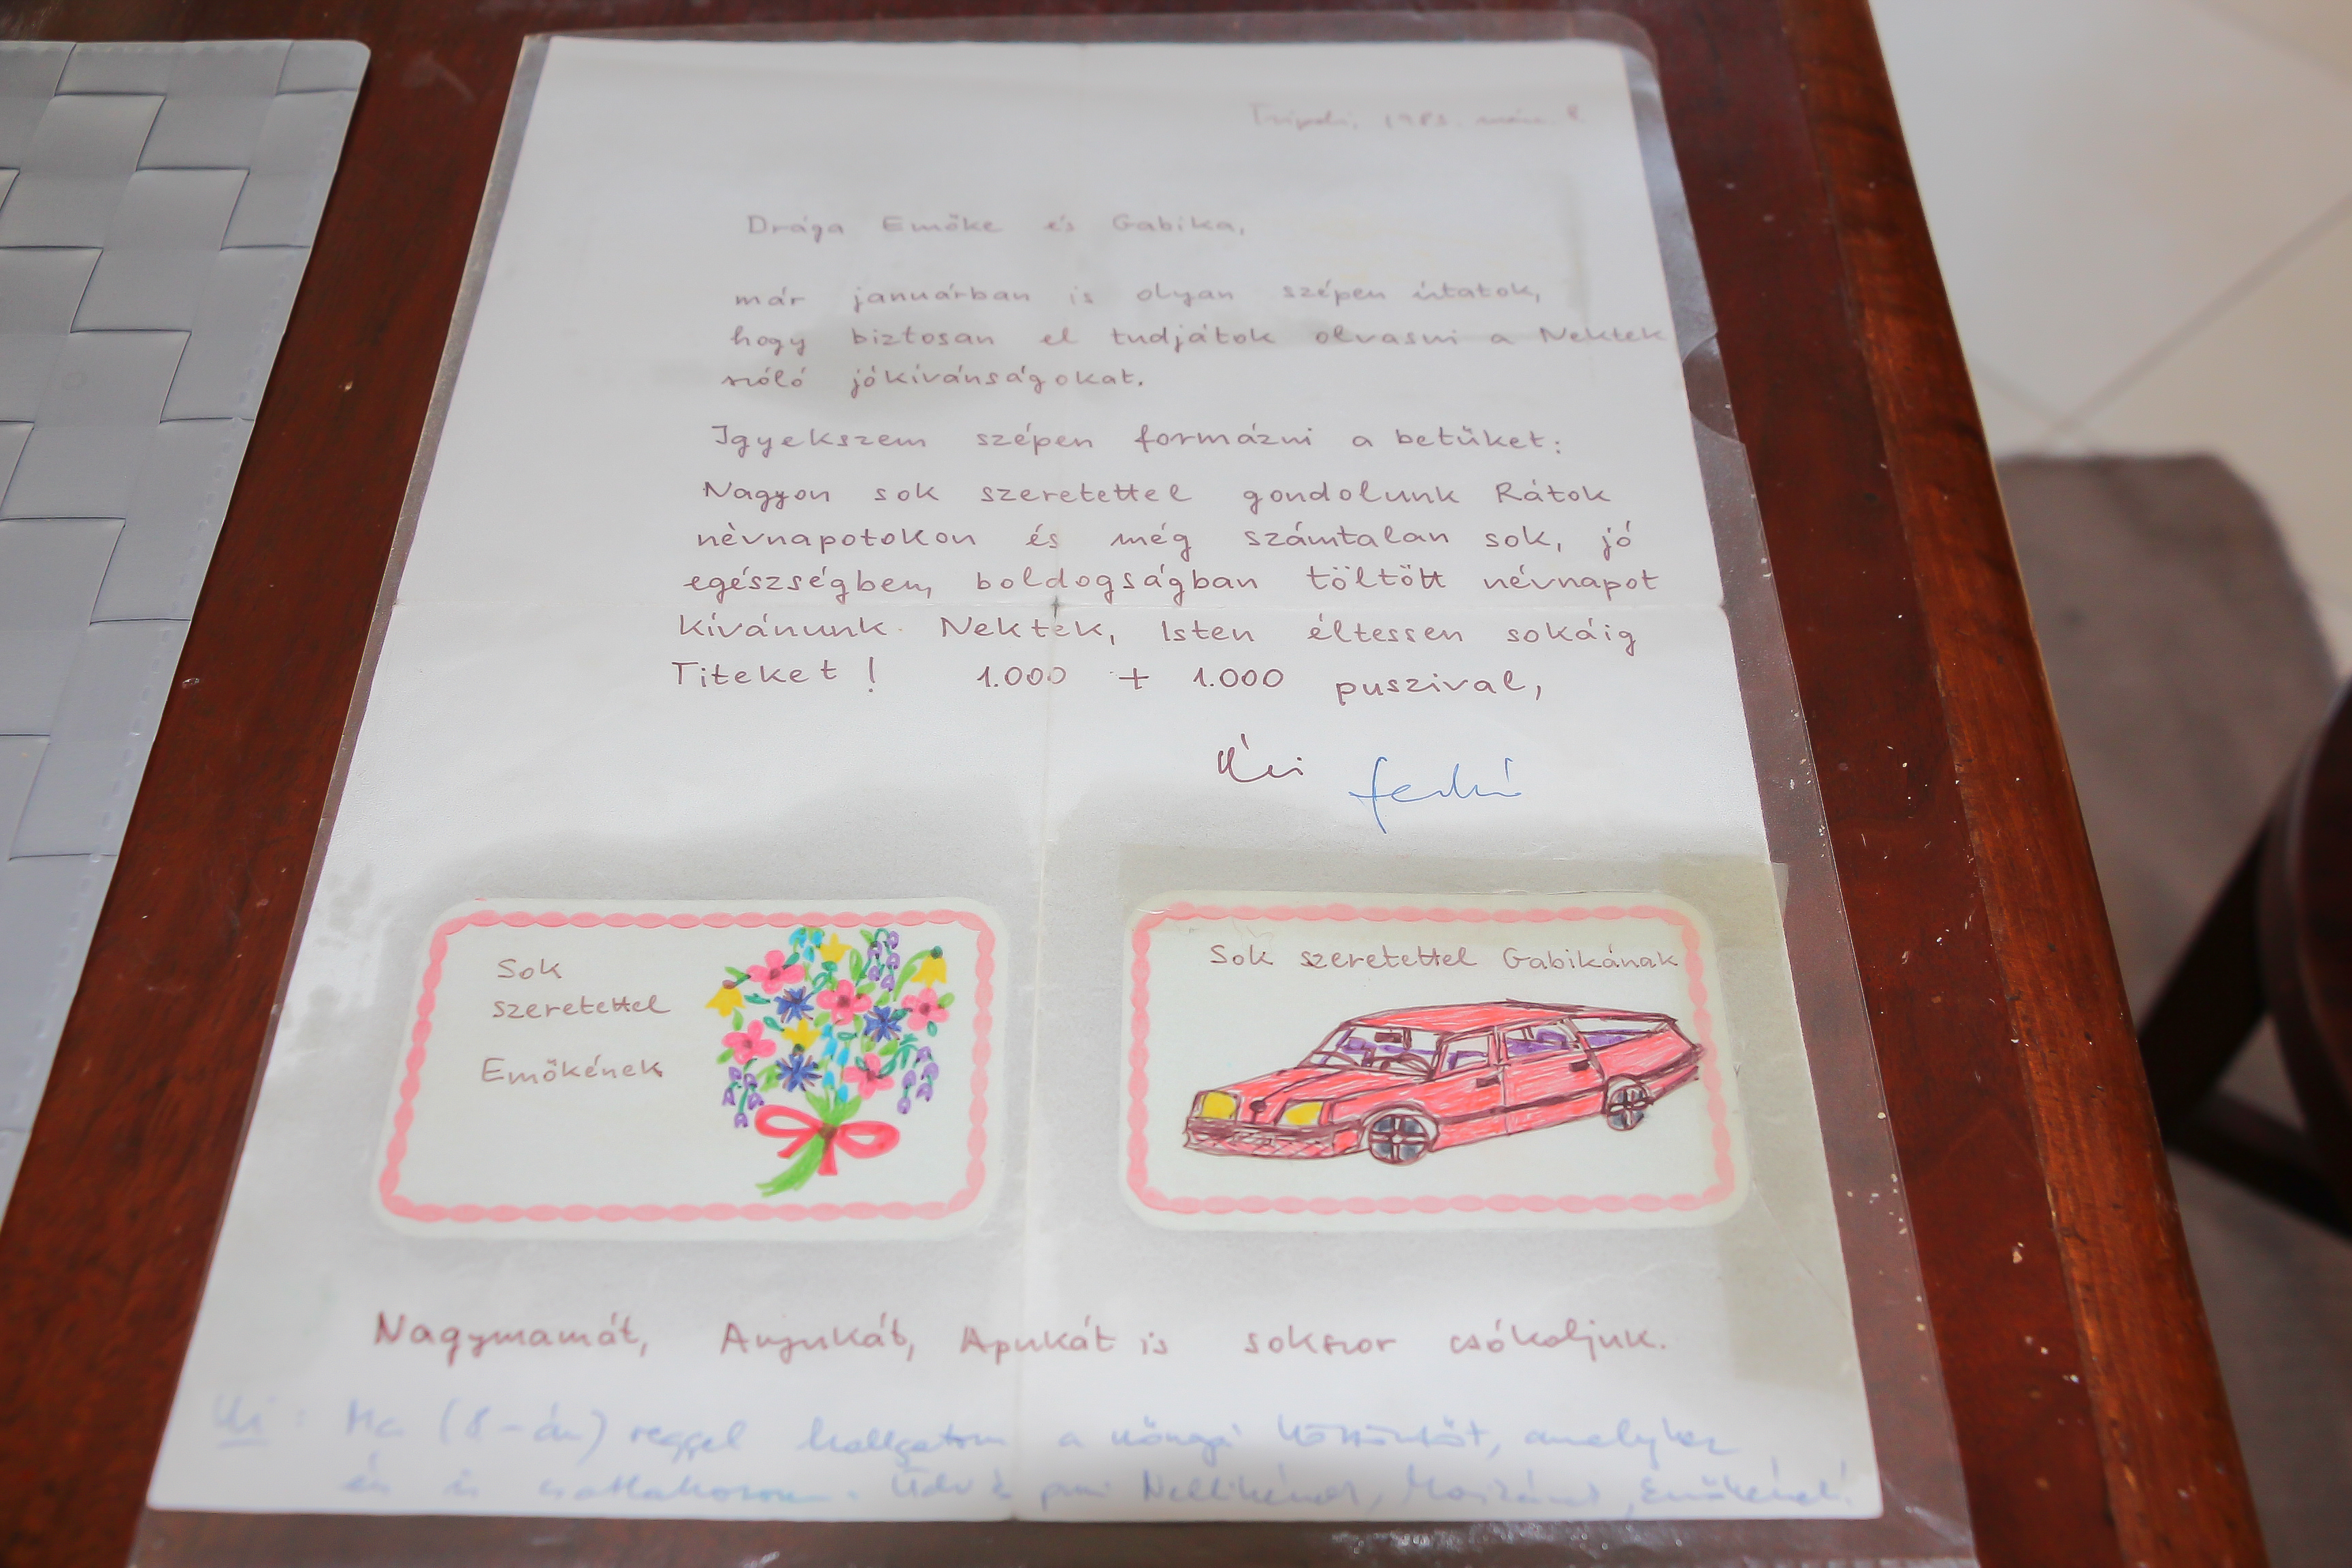 Tripoli, 1983. márc. 8.
Drága Emőke és Gabika,
már januárban is olyan szépen írtatok,
hogy biztosan el tudjátok olvasni a Nektek
szóló jókívánságokat.
Igyekszem szépen formázni a betűket:
Nagyon sok szeretettel gondolunk Rátok
névnapotokon és még számtalan sok, jó
egészségben, boldogságban töltött névnapot
kívánunk Nektek, Isten éltessen sokáig
Titeket! 1.000 + 1.000 puszival,
Sok
szeretettel
Emőkének
Sok szeretettel Gabikának
Nagymamát, Anyukát, Apukát is sokszor csókoljuk.
Ma (8-án) reggel hallgatom a köszöntőt, amelyhez
én is csatlakozom. Üdv Emőkének!